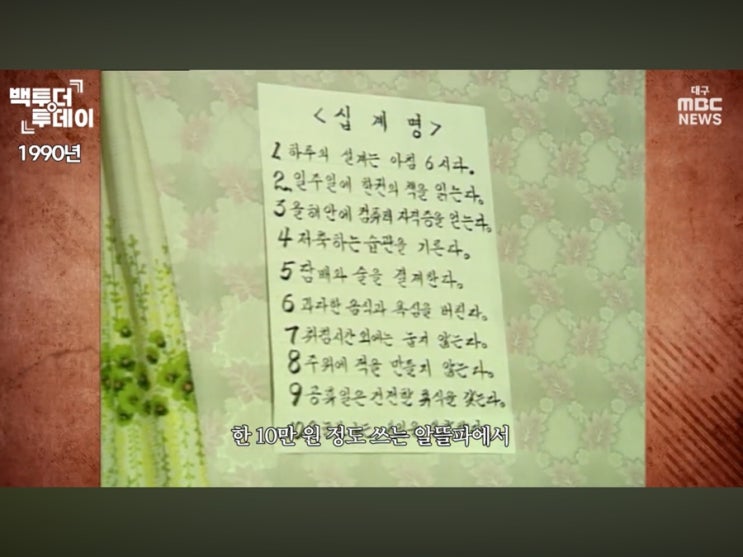 백투더
투데이
1990년
대구
MBC
NEWS
<십계명>
1 하루의 설계는 아침 6시다.
2. 일주일에 한권의 책을 읽는다.
3 올해안에 컴퓨터 자격증을 얻는다.
4 저축하는 습관을 기른다.
5 담배와 술을 절제한다.
6 과다한 음식과 욕심을 버린다.
7 취침시간외에는 눕지 않는다.
8 주위에 적을 만들지 않는다.
9 공휴일은 건전한 휴식을 갖는다.
한 10만 원 정도 쓰는 알뜰파에서